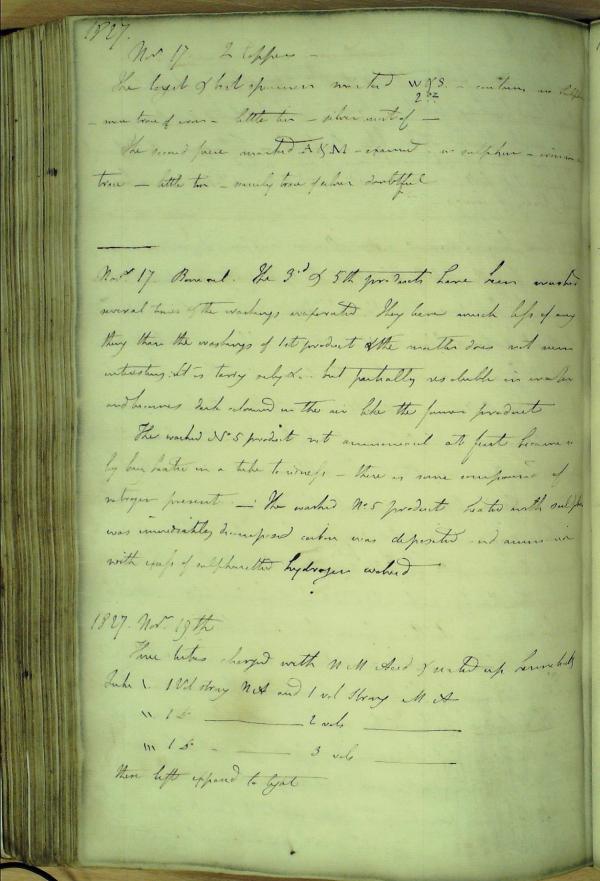 1827.
Nov. 17 2 Coppers -
The largest & best specimen marked W & S. - contains no
2 oz
- mere trace of iron - little tin - silver most of -
The second piece marked A & M - examined - no sulphur -
trace - little tin - merely trace of silver doubtful
Nov. 17. The 3rd & 5th products have been washed
several times & the washings evaporated. They leave much less of any
thing than the washings of 1st product & the matter does not seem
interesting. It is tarry only &c. but partially resoluble in water
and becomes dark coloured in the air like the former product
The washed No 5 product not ammoniacal at first became so
by being heated in a tube - there is some compound of
nitrogen present - The washed No 5 product heated with
was immediately decomposed carbon was deposited and
with excess of sulphuretted hydrogen evolved
1827. Nov. 19th
Three tubes charged with N M Acid & sealed up
Tube \. 1 Vol strong N A and 1 vol strong M A
\\ 1 Do 2 vols
\\\ 1 Do 3 vols
these left exposed to light